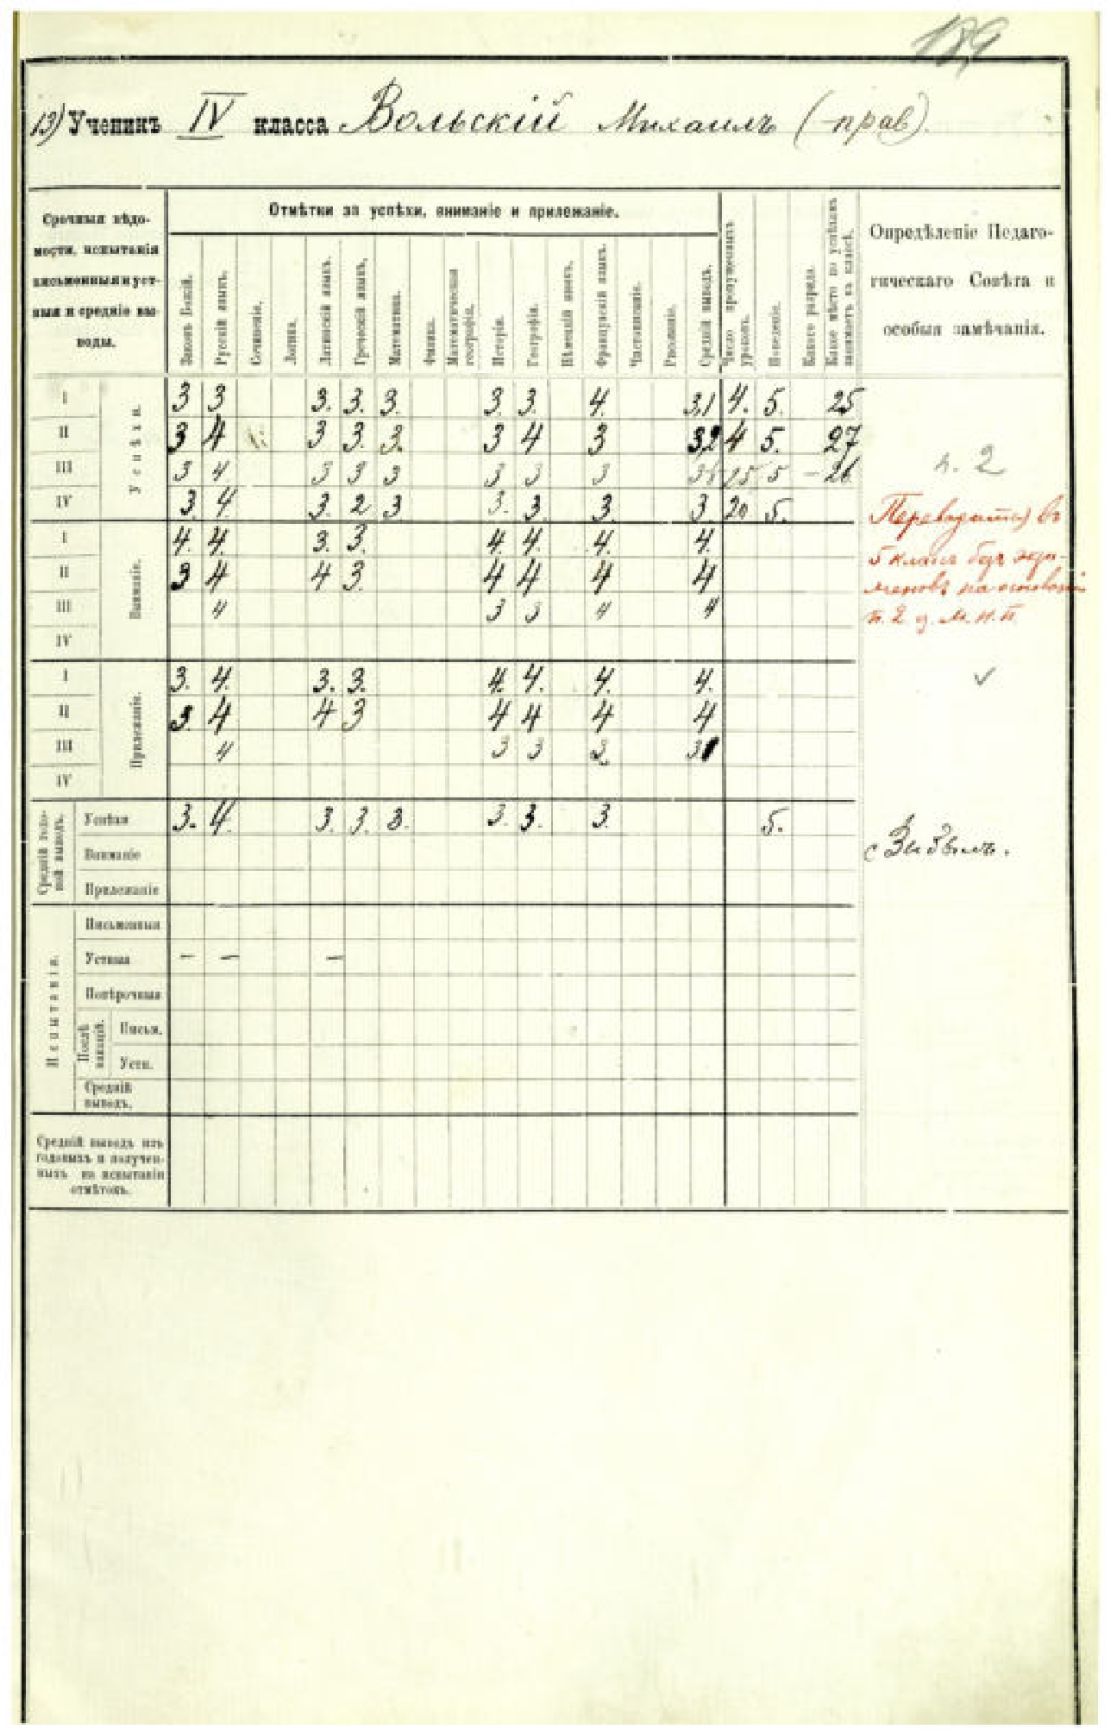 189
13) Ученикъ IV класса Вольскій Михаилъ (прав).
Срочныя вѣдо-
мости, испытанія
письменныя и уст-
ныя и средніе вы-
воды.
Отмѣтки за успѣхи, вниманіе и прилежаніе.
Законъ Божій.
Русскій языкъ.
Сочиненіе.
Логика.
Латинскій языкъ.
Греческій языкъ.
Математика.
Физика.
Математическая
географія.
Исторія.
Географія.
Нѣмецкій языкъ.
Французскій языкъ.
Чистописаніе.
Рисованіе.
Средній выводъ.
Число пропущенныхъ
уроковъ.
Поведеніе.
Какого разряда.
Какое мѣсто по успѣхамъ
занимаетъ въ классѣ.
Опредѣленіе Педаго-
гическаго Совѣта и
особыя замѣчанія.
Успѣхи.
I 3 3 3. 3. 3. 3. 3. 4. 3,1 4. 5. 25
II 3 4 3 3. 3. 3 4 3 3,2 4 5. 27
III 3 4 3 3 3 3 3 3 25 5 - 26
IV 3. 4. 3. 2 3 3. 3. 3. 3. 20 5.
п. 2
Переводится въ
5 классъ безъ экза-
меновъ на основаніи
п. 2 ц. М. Н. П.
Вниманіе.
I 4. 4. 3. 3. 4. 4. 4. 4.
II 3 4 4 3. 4 4 4 4
III 4 3 3 4 4
IV
Прилежаніе.
I 3. 4. 3. 3. 4. 4. 4. 4.
II 3. 4 4 3 4 4 4 4
III 4 3 3 3
IV
Средній годо-
вой выводъ.
Успѣхи 3. 4. 3. 3. 3. 3. 3. 3. 5.
Вниманіе
Прилежаніе
Испытанія.
Письменныя
Устныя – – –
Повѣрочныя
Послѣ
вакацій.
Письм.
Устн.
Средній
выводъ.
Средній выводъ изъ
годовыхъ и получен-
ныхъ на испытаніи
отмѣтокъ.